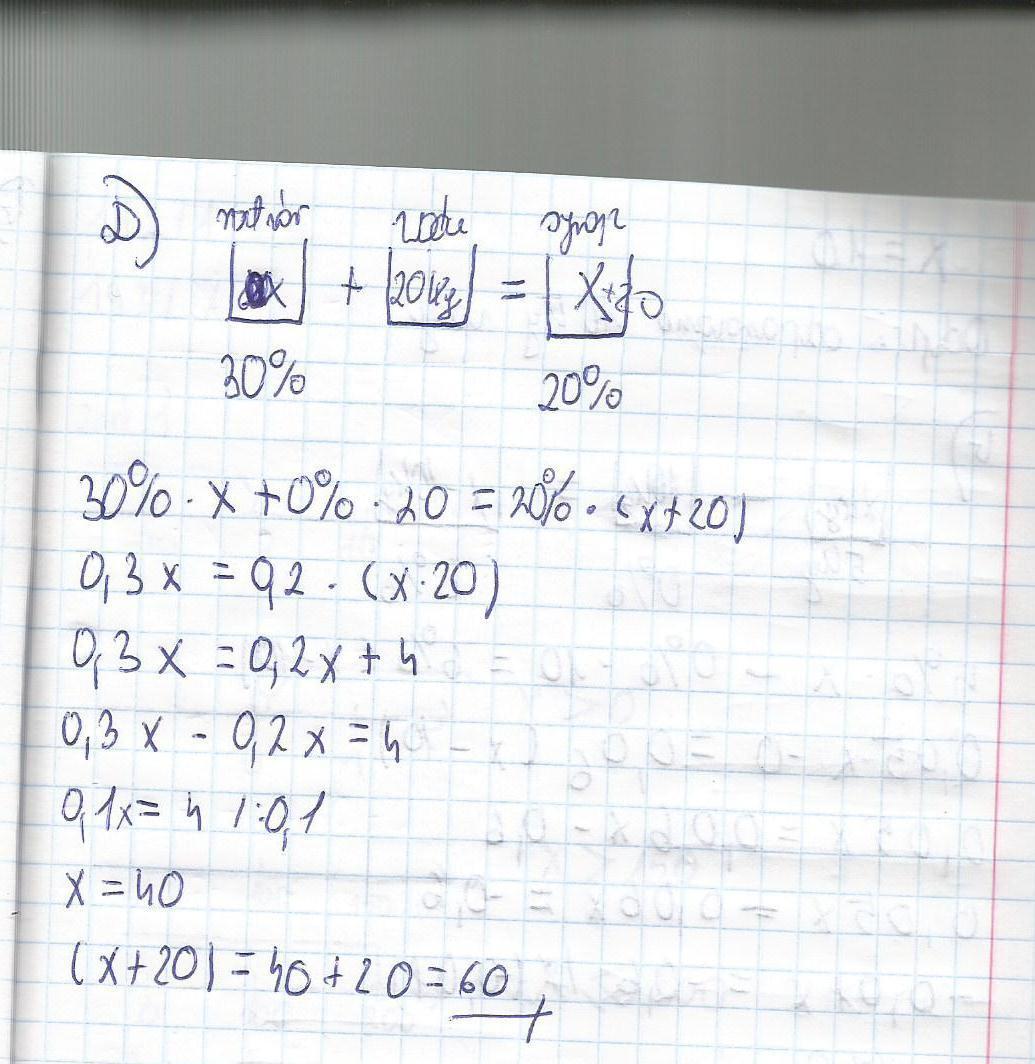 D) roztwór woda syrop
x + 20kg = x+20
30% 20%
30% · x + 0% · 20 = 20% · (x+20)
0,3x = 0,2 · (x·20)
0,3x = 0,2x + 4
0,3x - 0,2x = 4
0,1x = 4 /:0,1
x = 40
(x+20) = 40+20 = 60